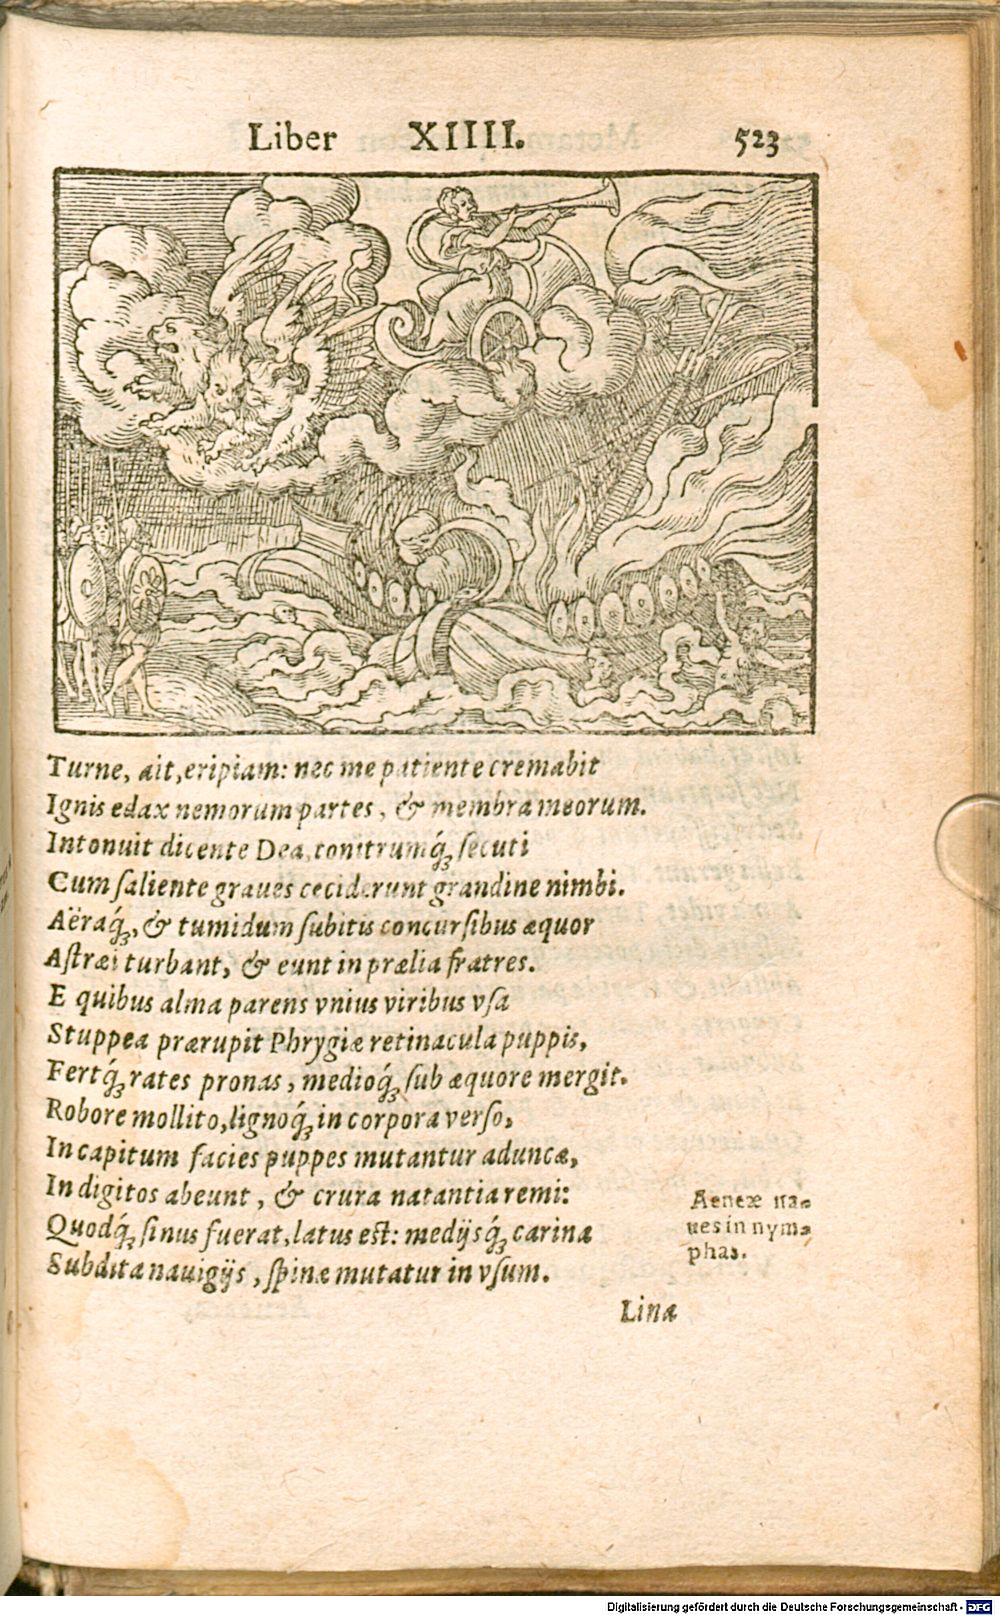 Liber XIIII. 523
Turne, ait, eripiam: nec me patiente cremabit
Ignis edax nemorum partes, & membra meorum.
Intonuit dicente Dea, tonitrumq́ꝫ secuti
Cum saliente graues ceciderunt grandine nimbi.
Aëraq́ꝫ, & tumidum subitis concursibus æquor
Astræi turbant, & eunt in prælia fratres.
E quibus alma parens vnius viribus vsa
Stuppea prærupit Phrygiæ retinacula puppis,
Fertq́ꝫ rates pronas, medioq́ꝫ sub æquore mergit.
Robore mollito, lignoq́ꝫ in corpora verso,
In capitum facies puppes mutantur aduncæ,
In digitos abeunt, & crura natantia remi:
Quodq́ꝫ sinus fuerat, latus est: medijsq́ꝫ carina
Subdita nauigijs, spinæ mutatur in vsum.
Aeneæ na-
ues in nym-
phas.
Lina
Digitalisierung gefördert durch die Deutsche Forschungsgemeinschaft - DFG